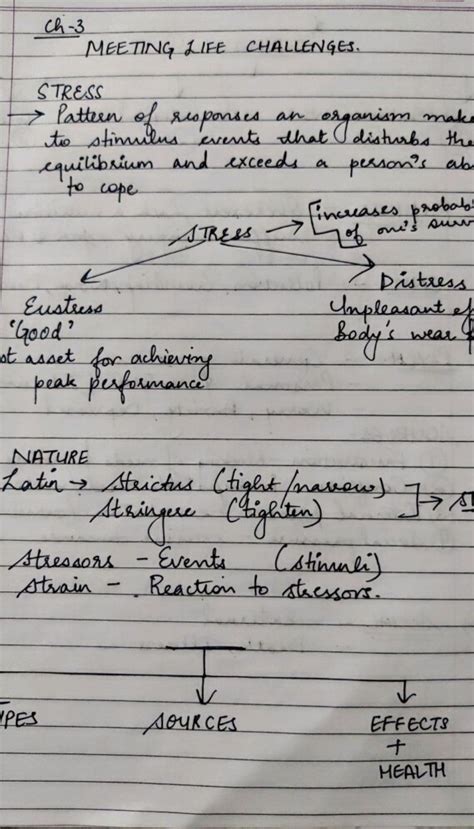 Ch-3
MEETING LIFE CHALLENGES.
STRESS
→ Pattern of responses an organism make
to stimulus events that disturbs the
equilibrium and exceeds a person's ab
to cope
STRESS → increases probab
of one's surv
Eustress
'Good'
st asset for achieving
peak performance
Distress
Unpleasant ef
Body's wear
NATURE
Latin → Strictus (tight/narrow)
Stringere (tighten)
→ ST
Stressors - Events (stimuli)
Strain - Reaction to stressors.
YPES
SOURCES
EFFECTS
+
HEALTH